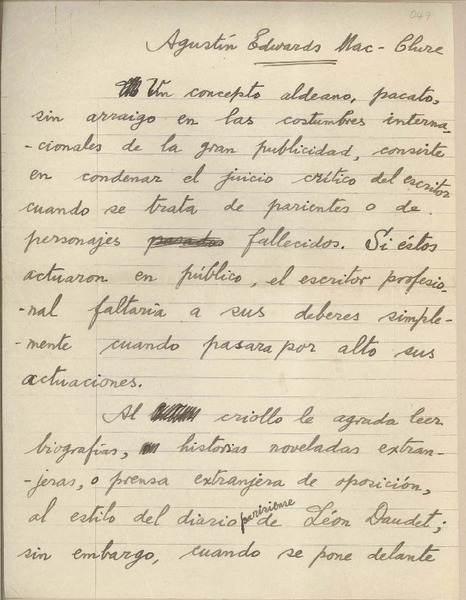 047
Agustín Edwards Mac-Clure
Un concepto aldeano, pacato,
sin arraigo en las costumbres interna-
-cionales de la gran publicidad, consiste
en condenar el juicio crítico del escritor
cuando se trata de parientes o de
personajes pasados fallecidos. Si éstos
actuaron en público, el escritor profesio-
-nal faltaría a sus deberes simple-
-mente cuando pasara por alto sus
actuaciones.
Al criollo le agrada leer
biografías, historias noveladas extran-
-jeras, o prensa extranjera de oposición,
al estilo del diario parisiense de Léon Daudet;
sin embargo, cuando se pone delante